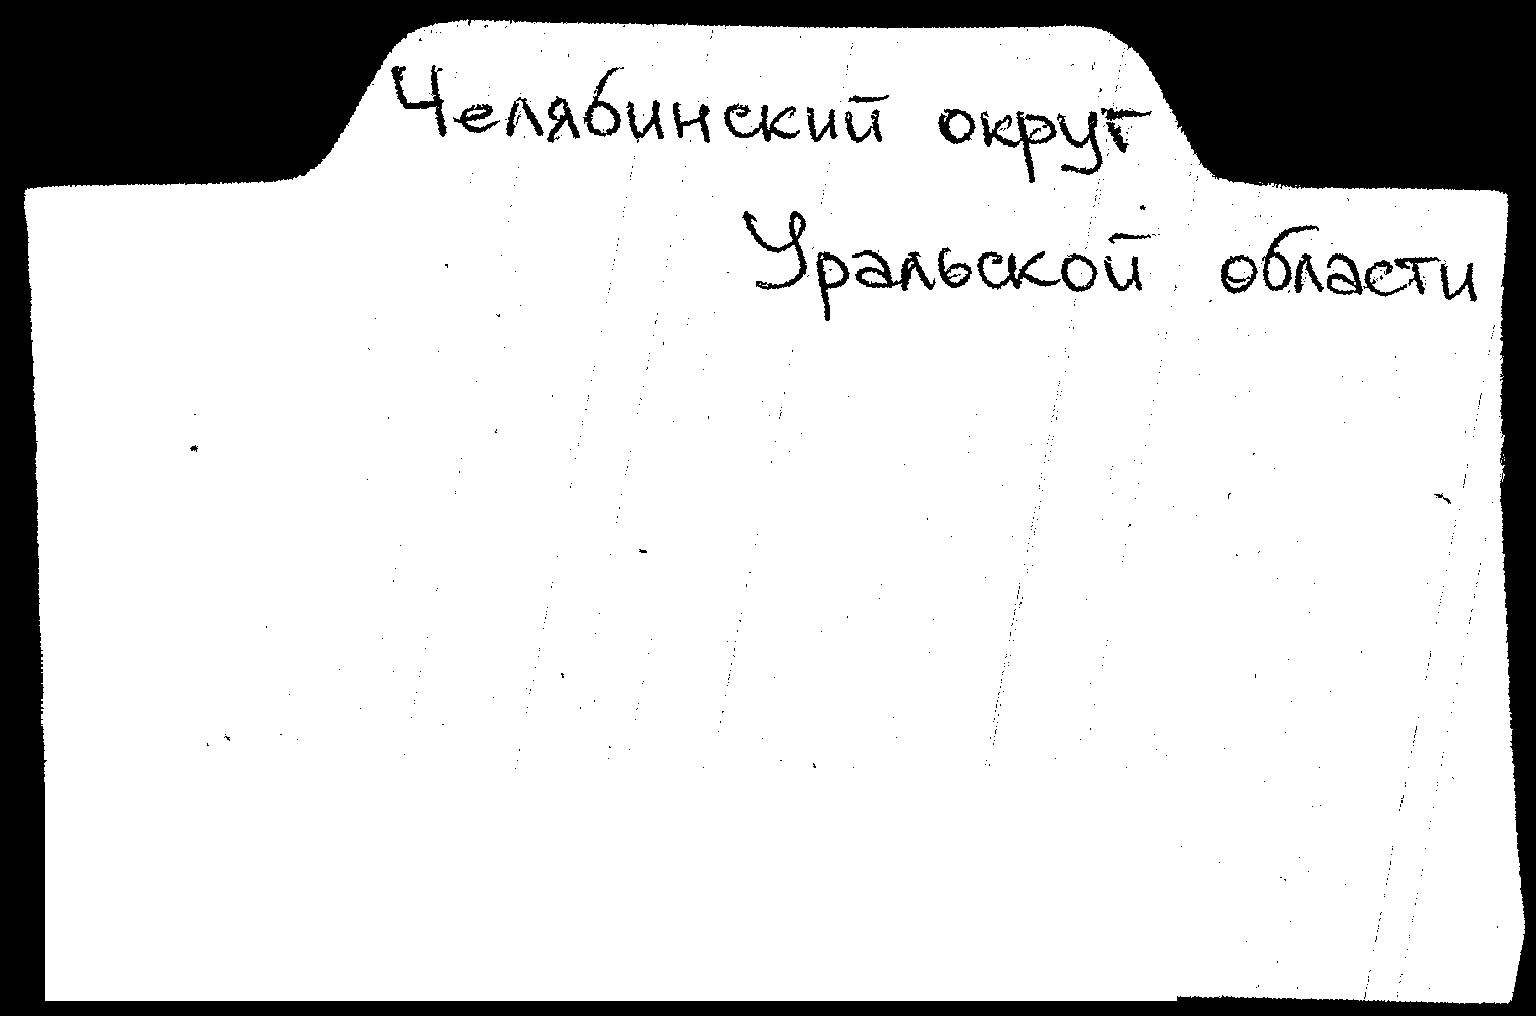 Челябинский округ
Уральской области